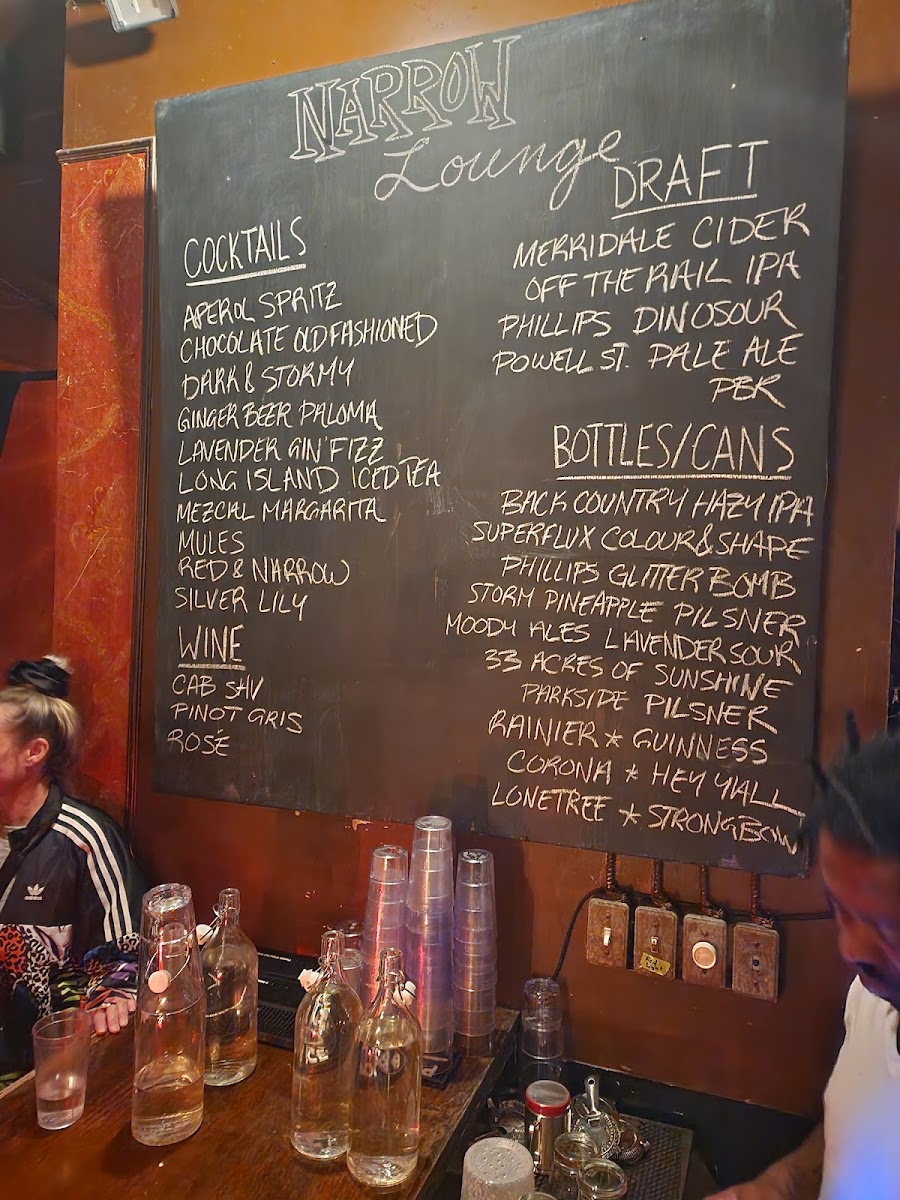 NARROW
Lounge
COCKTAILS
APEROL SPRITZ
CHOCOLATE OLD FASHIONED
DARK & STORMY
GINGER BEER PALOMA
LAVENDER GIN FIZZ
LONG ISLAND ICED TEA
MEZCAL MARGARITA
MULES
RED & NARROW
SILVER LILY
WINE
CAB SAV
PINOT GRIS
ROSÉ
DRAFT
MERRIDALE CIDER
OFF THE RAIL IPA
PHILLIPS DINOSOUR
POWELL ST. PALE ALE
PBR
BOTTLES/CANS
BACK COUNTRY HAZY IPA
SUPERFLUX COLOUR & SHAPE
PHILLIPS GLITTER BOMB
STORM PINEAPPLE PILSNER
MOODY ALES LAVENDER SOUR
33 ACRES OF SUNSHINE
PARKSIDE PILSNER
RAINIER * GUINNESS
CORONA * HEY Y'ALL
LONETREE * STRONGBOW
adidas